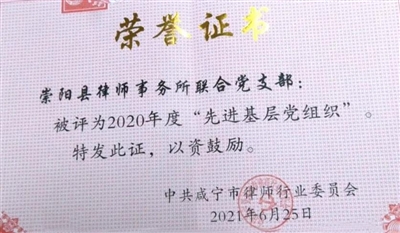 荣誉证书
崇阳县律师事务所联合党支部：
被评为2020年度“先进基层党组织”。
特发此证，以资鼓励。
中共咸宁市律师行业委员会
2021年6月25日